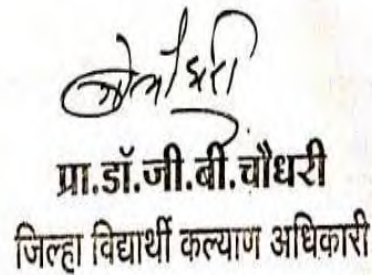 प्रा.डॉ.जी.बी.चौधरी
जिल्हा विद्यार्थी कल्याण अधिकारी